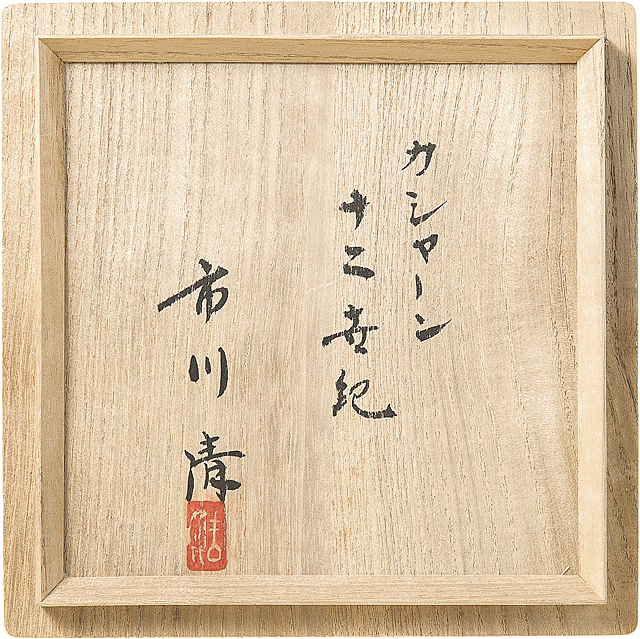 カシャーン
十二世紀
市川清